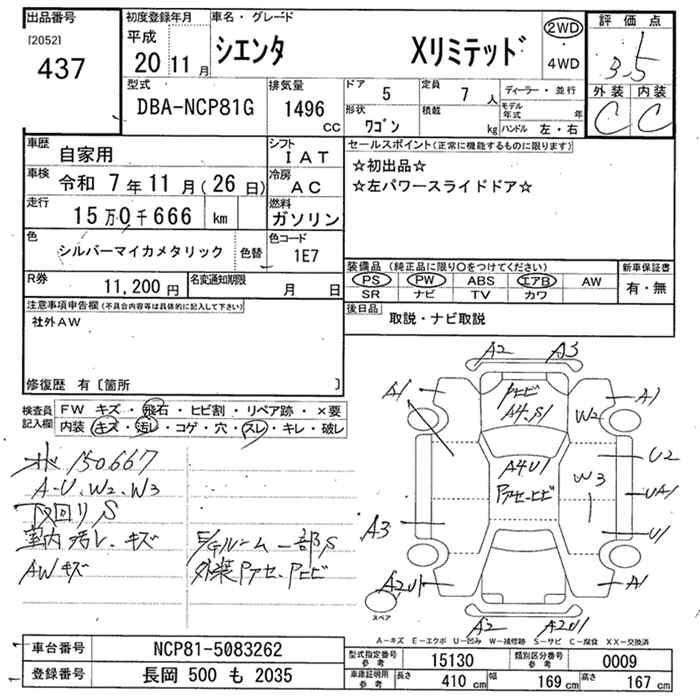 出品番号
[2052]
437
初度登録年月
平成
20 11 月
車名・グレード
シエンタ Xリミテッド
2WD
・
4WD
評価点
3.5
外装 内装
C C
型式
DBA-NCP81G
排気量
1496
CC
ドア
5
定員
7 人
形状
ワゴン
積載
kg
ディーラー・並行
モデル
年式 年
ハンドル 左・右
車歴
自家用
シフト
I AT
車検
令和 7 年 11 月 (26 日)
冷房
AC
走行
15 万 0 千 666 km
燃料
ガソリン
色
シルバーマイカメタリック
色替
色コード
1E7
R券
11,200 円
名変通知期限
月 日
セールスポイント(正常に機能するものに限ります)
☆初出品☆
☆左パワースライドドア☆
装備品 (純正品に限り○をつけてください)
PS PW ABS エアB AW
SR ナビ TV カワ
新車保証書
有・無
後日品
取説・ナビ取説
注意事項申告欄(不具合内容等は具体的に記入して下さい)
社外AW
修復歴 有〔箇所 〕
検査員
記入欄
FW キズ・飛石・ヒビ割・リペア跡・×要
内装 キズ・汚レ・コゲ・穴・スレ・キレ・破レ
150667
A-U、W2、W3
下回りS
室内汚レ、キズ
AWキズ
E/Gルーム一部S
外装Pアセ、Pヒビ
A2 A3
A1
Pヒビ
A4、S1
A1
W2
A4U1
Pアセ、ヒビ
U2
W3
UA1
A3
U1
A2U1
A1
スペア
A2 A2U1
A-キズ E-エクボ U-凹み W-補修跡 S-サビ C-腐食 XX-交換済
車台番号
NCP81-5083262
登録番号
長岡 500 も 2035
型式指定番号
参考
15130
類別区分番号
参考
0009
車庫証明用
参考
長さ
410 cm
幅
169 cm
高さ
167 cm